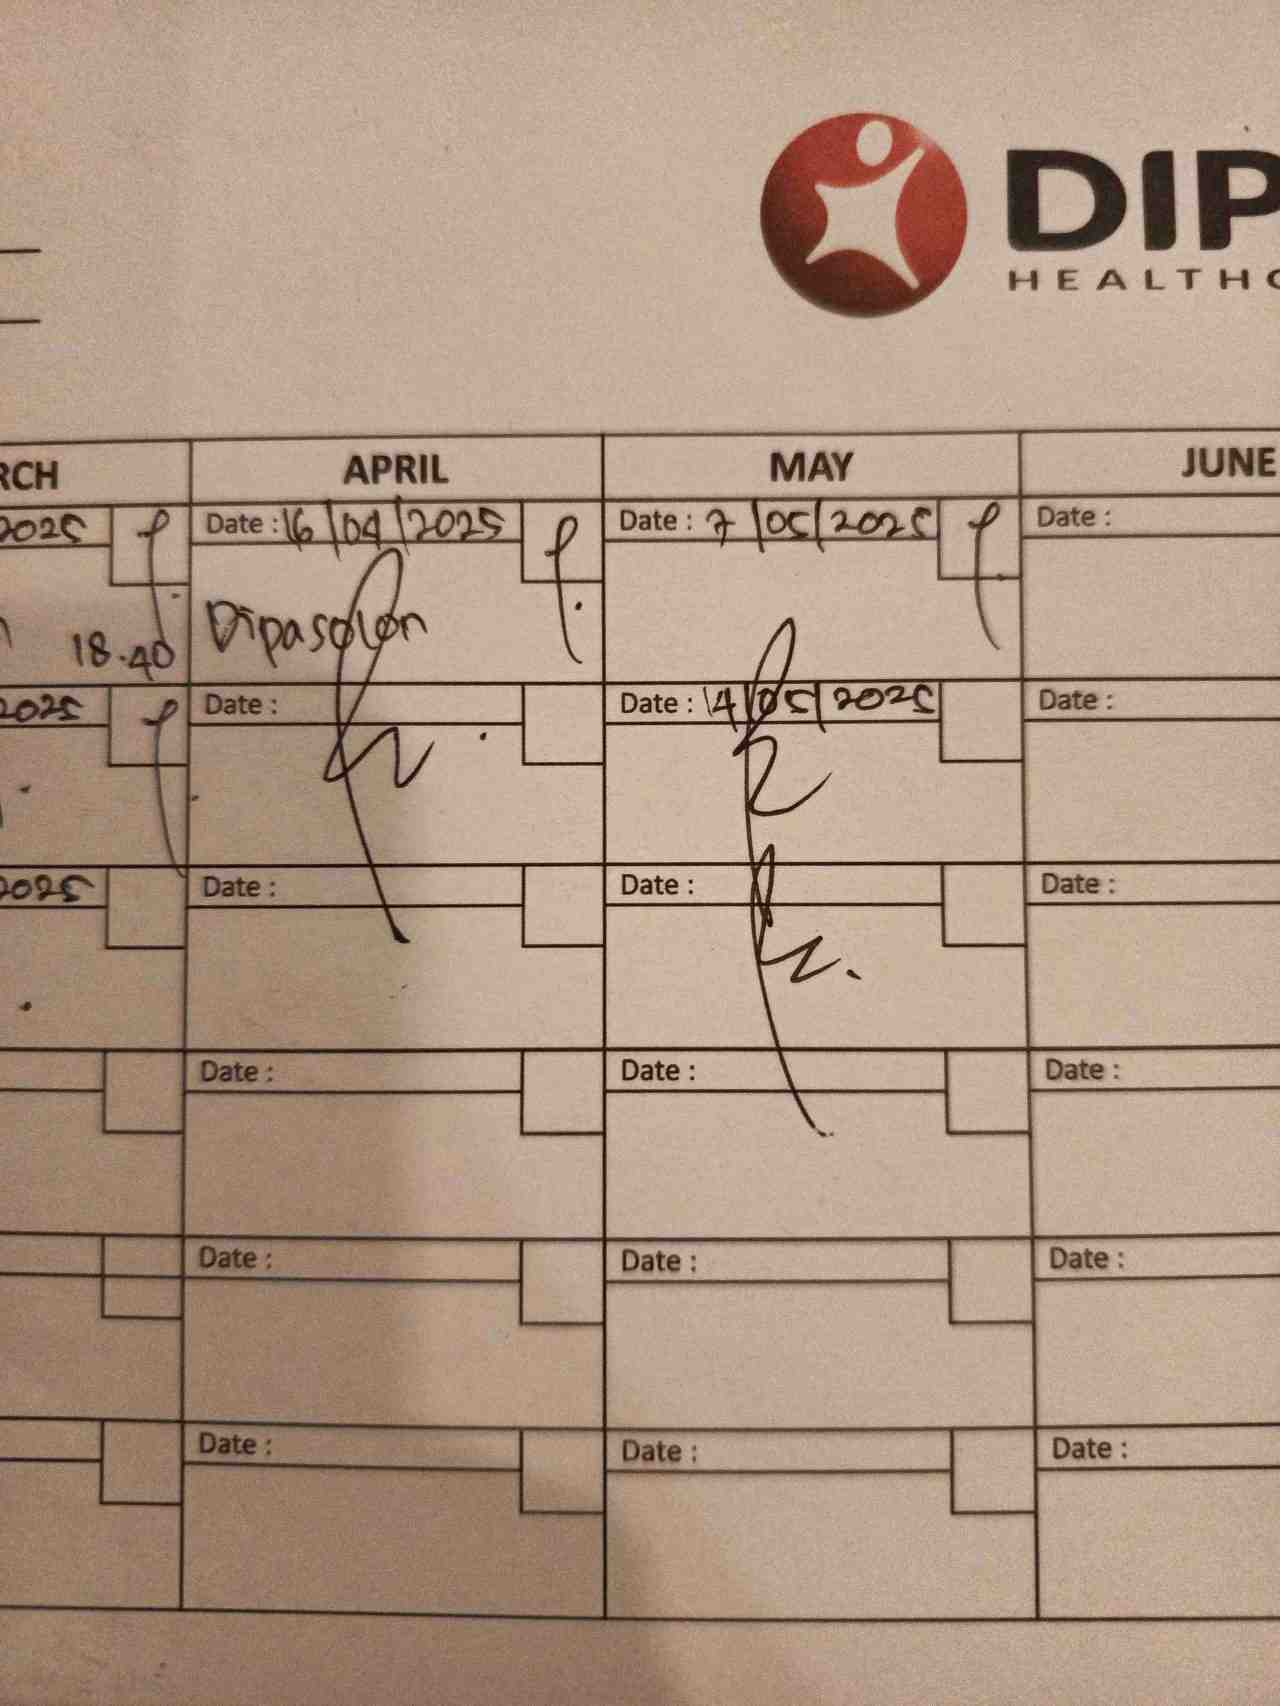 DIP
HEALTHC
RCH APRIL MAY JUNE
2025 Date : 16/04/2025 Date : 7/05/2025 Date :
18.40 Dipasolon
2025 Date : Date : 14/05/2025 Date :
2025 Date : Date : Date :
Date : Date : Date :
Date : Date : Date :
Date : Date : Date :